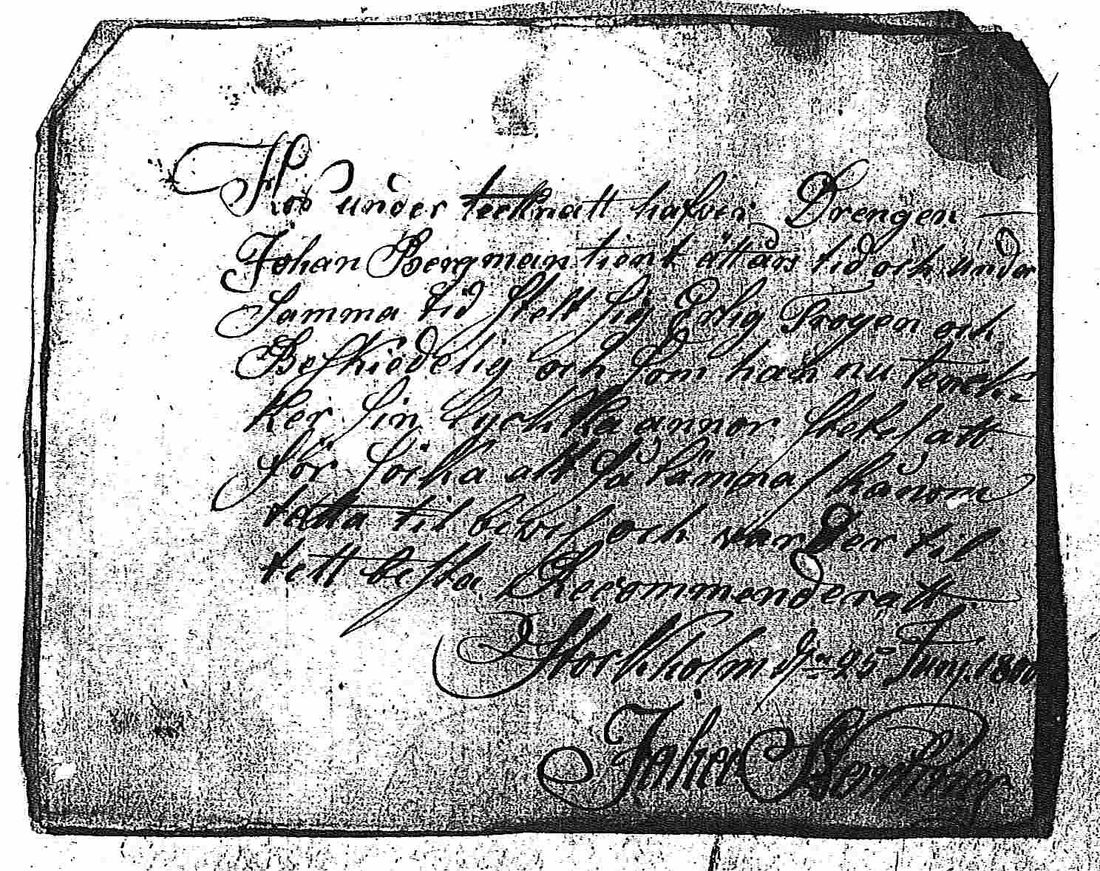 Hos under tecknatt hafver Drengen
Johan Bergman tient ått års tid och under
Samma tid stelt sig Erlig Trogen och
Beskiedelig och som han nu tenc-
ker sin lycka annor stetes att
för söcka allt så lämnas hånom
tetta til bevis och var Der til
tett besta Recommenderatt
Stockholm d. 25 Juny 180